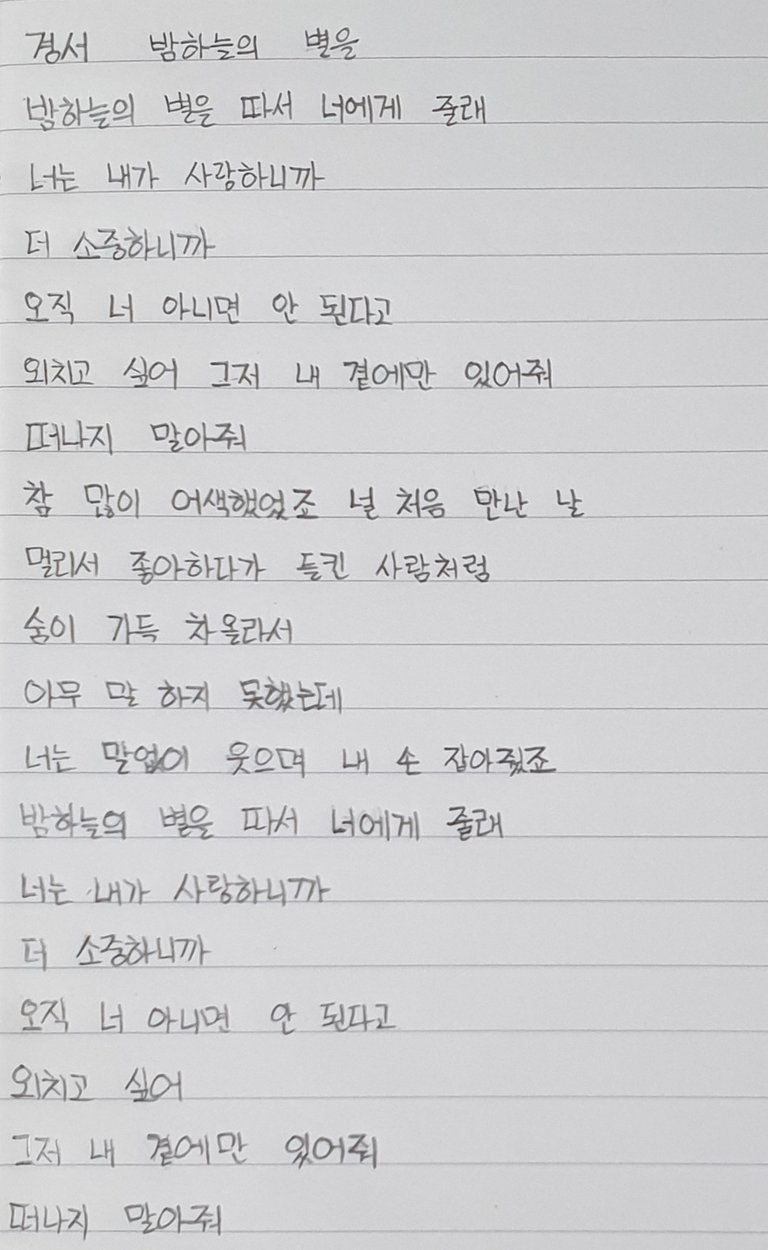 경서 밤하늘의 별을
밤하늘의 별을 따서 너에게 줄래
너는 내가 사랑하니까
더 소중하니까
오직 너 아니면 안 된다고
외치고 싶어 그저 내 곁에만 있어줘
떠나지 말아줘
참 많이 어색했었죠 널 처음 만난 날
멀리서 좋아하다가 들킨 사람처럼
숨이 가득 차올라서
아무 말 하지 못했는데
너는 말없이 웃으며 내 손 잡아줬죠
밤하늘의 별을 따서 너에게 줄래
너는 내가 사랑하니까
더 소중하니까
오직 너 아니면 안 된다고
외치고 싶어
그저 내 곁에만 있어줘
떠나지 말아줘